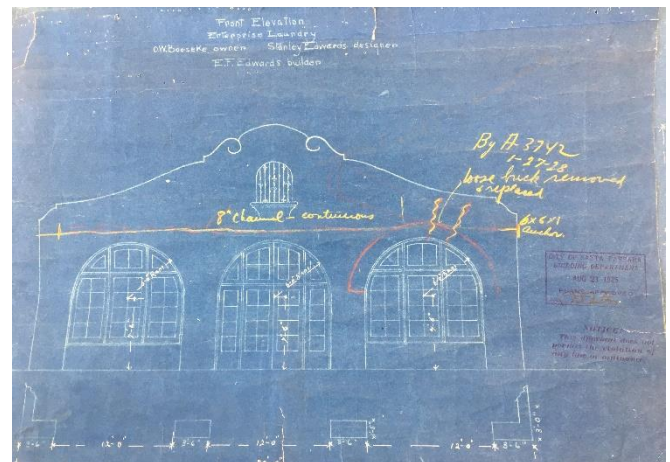 Front Elevation
Enterprise Laundry
O.W. Beeseke owner Stanley Edwards designer
E.F. Edwards builder
By A-3742
1-27-28
loose brick removed
& replaced
8" Channel - continuous
6x6x1
anchor.
CITY OF SANTA BARBARA
BUILDING DEPARTMENT
AUG 21 1925
NOTICE:
This does not
permit the violation of
any law or ordinance
12'-0"
3'-6"
12'-0"
12'-0"
3'-6"